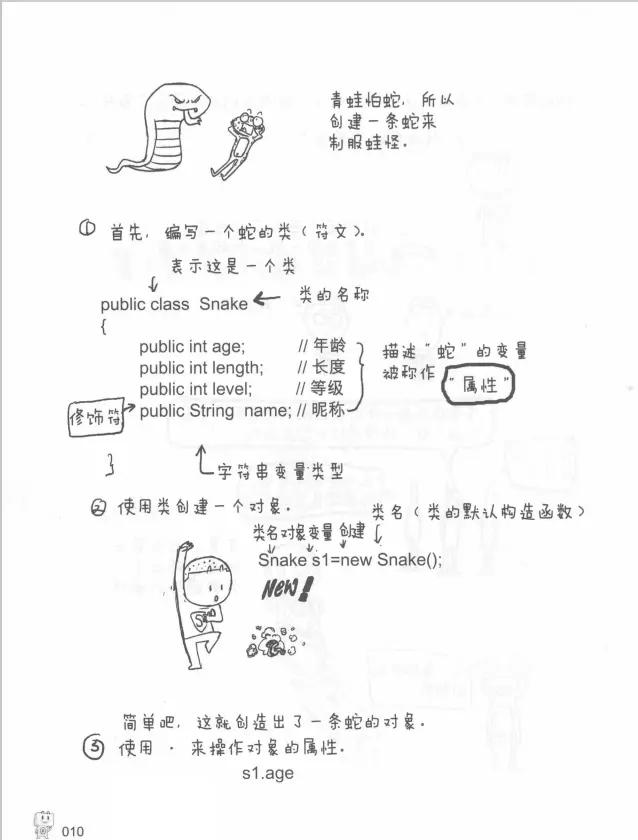 青蛙怕蛇，所以
创建一条蛇来
制服蛙怪.
① 首先，编写一个蛇的类（符文）.
表示这是一个类
public class Snake
类的名称
{
public int age; // 年龄
public int length; // 长度
public int level; // 等级
public String name; // 昵称
描述“蛇”的变量
被称作
“属性”
修饰符
}
字符串变量类型
② 使用类创建一个对象.
类名（类的默认构造函数）
类名 对象变量 创建
Snake s1=new Snake();
NEW!
简单吧，这就创造出了一条蛇的对象.
③ 使用 . 来操作对象的属性.
s1.age
010